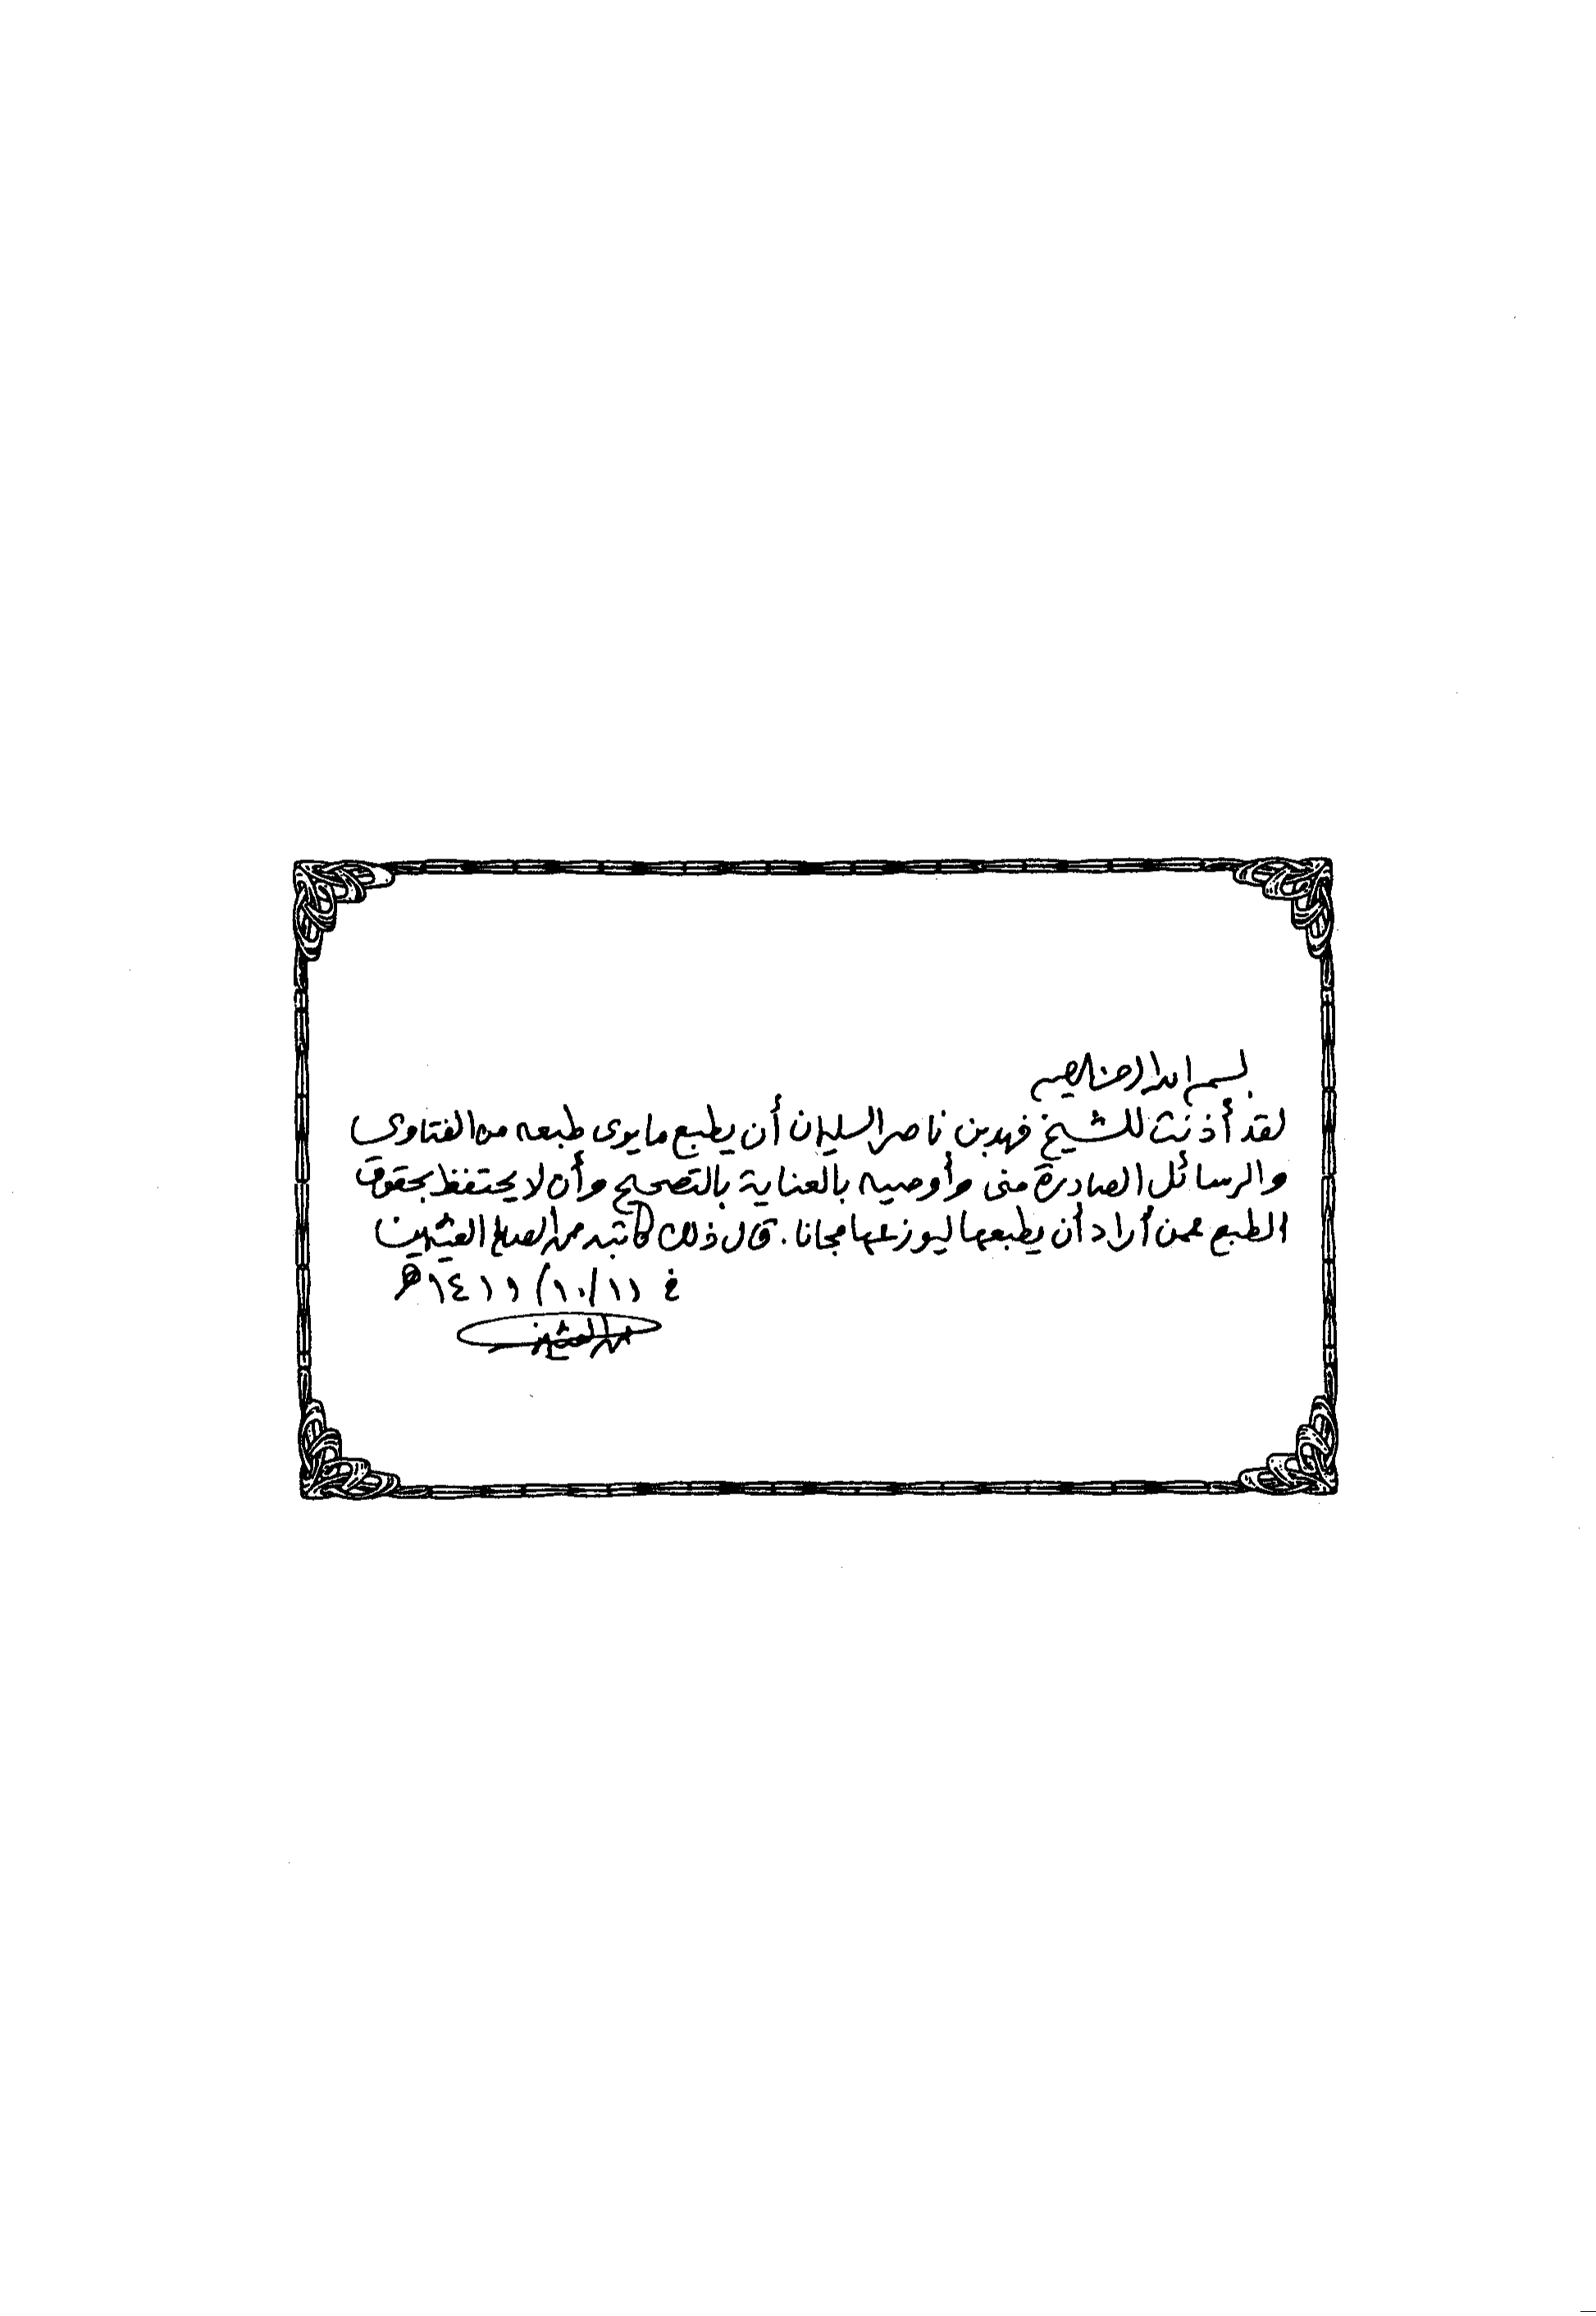 بسم الله الرحمن الرحيم
لقد أذنت للشيخ فهد بن ناصر السليمان أن يطبع ما يرى طبعه من الفتاوى
والرسائل الصادرة مني وأوصيه بالعناية بالتصحيح وأن لا يحتفظ بحقوق
الطبع عمن أراد أن يطبعها ليوزعها مجانا. قال ذلك كاتبه محمد الصالح العثيمين
في ١١/ ١٠/ ١٤١٩هـ
محمد العثيمين